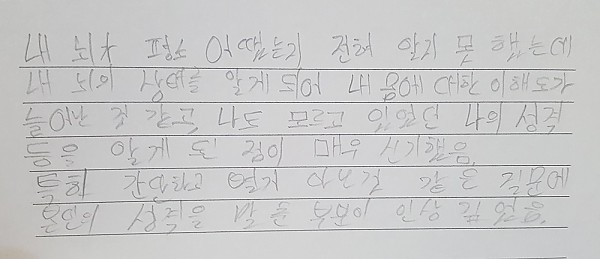 내 뇌가 평소 어땠는지 전혀 알지 못 했는데
내 뇌의 상태를 알게 되어 내 몸에 대한 이해도가
늘어난 것 같고, 나도 모르고 있었던 나의 성격
등을 알게 된 점이 매우 신기했음.
특히 간단하고 별거 아닌것 같은 질문에
본인의 성격을 맞춘 부분이 인상 깊었음.